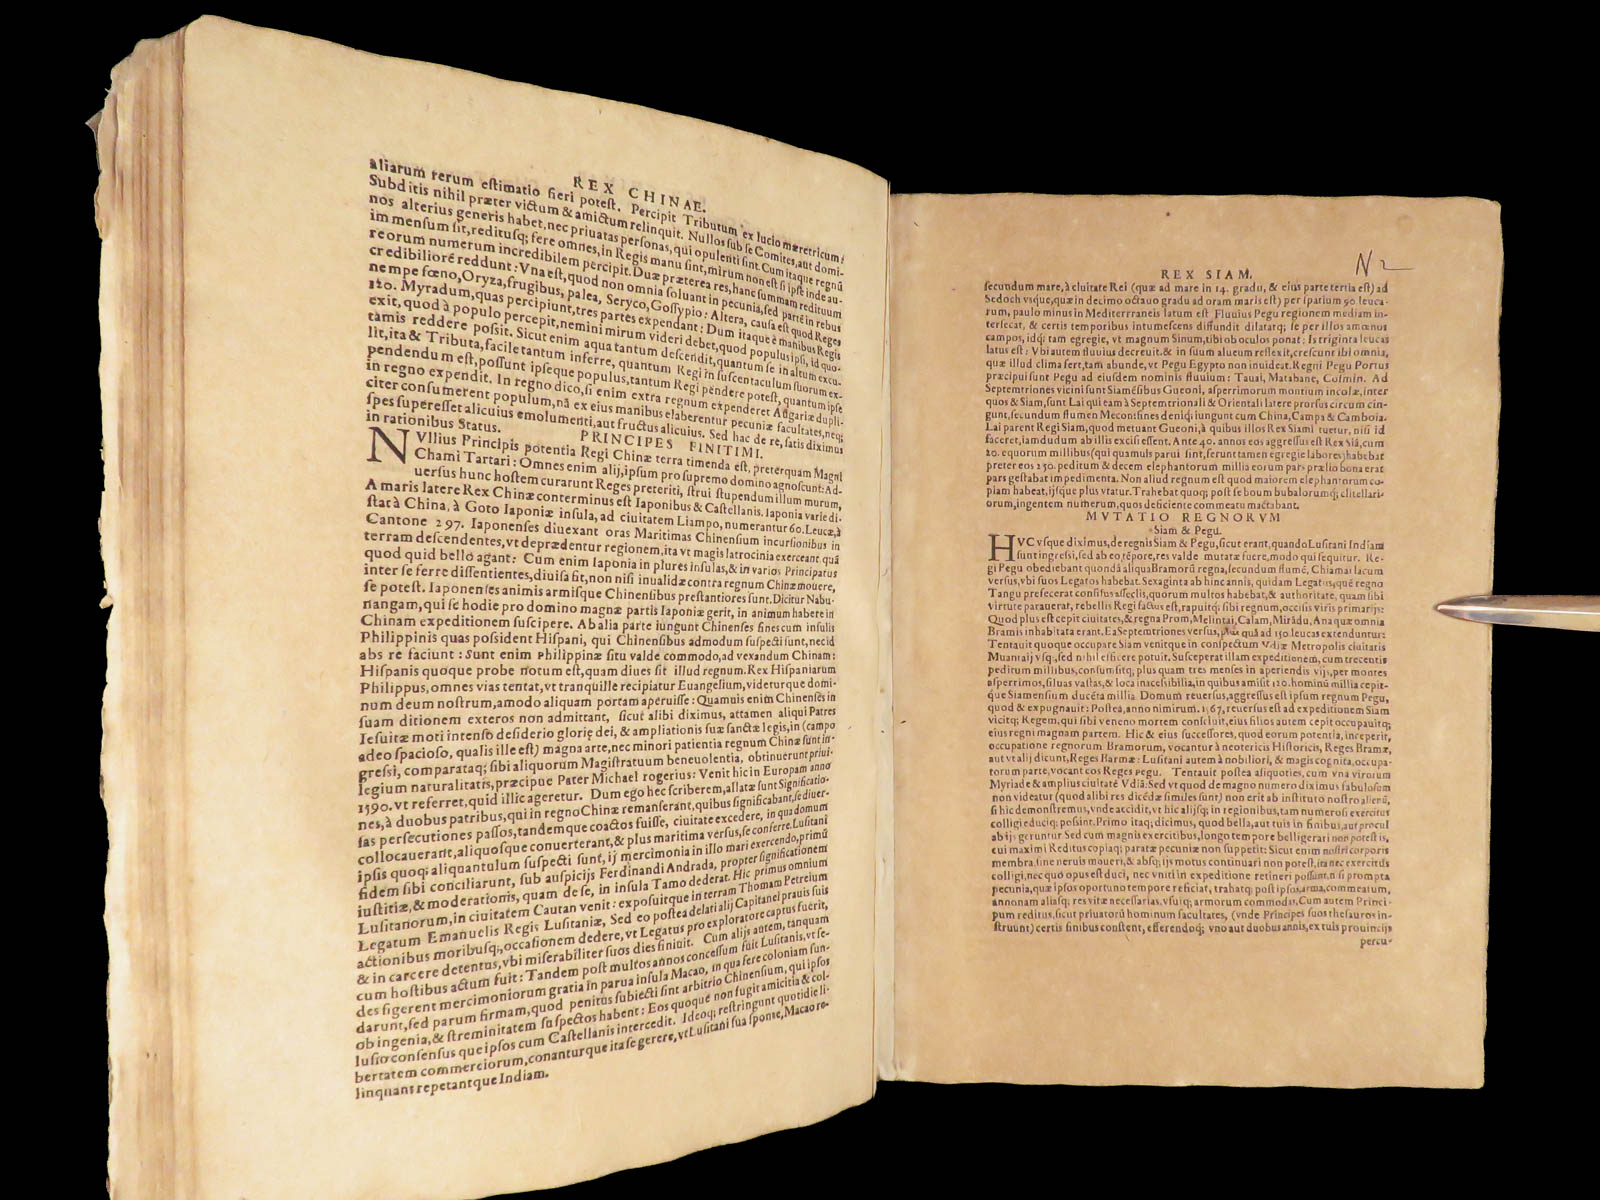 REX CHINAE.
aliarum rerum eſtimatio fieri poteſt. Percipit Tributum ex lucio meretricum:
Subditis nihil præter victum & amictum relinquit. Nullos ſub ſe Comites, aut domi-
nos alterius generis habet, nec priuatas perſonas, qui opulenti ſint. Cum itaque regnũ
immenſum ſit, redituſq; fere omnes, in Regis manu ſint, mirum non eſt ſi ipſe inde au-
reorum numerum incredibilem percipit. Duæ præterea res, hanc ſummam redituum
credibilioré reddunt: Vna eſt, quod non omnia ſoluant in pecunia, ſed parté in rebus
nempe fœno, Oryza, frugibus, palea, Seryco, Goſſypio: Altera, cauſa eſt quod Reges
120. Myradum, quas percipiunt, tres partes expendant: Dum itaque è manibus Regis
exit, quod à populo percepit, nemini mirum videri debet, quod populus ipſi, id quo-
tamis reddere poſſit. Sicut enim aqua tantum deſcendit, quantum ſe in altum excu-
lit, ita & Tributa, facile tantum inferre, quantum Regi in ſuſcentaculum ſuorum ex-
pendendum eſt, poſſunt ipſeque populus, tantum Regi pendere poteſt, quantum ipſe
in regno expendit. In regno dico, ſi enim extra regnum expenderet Angariæ dupli-
citer conſumerent populum, nã ex eius manibus elaberentur pecuniæ facultates, neq;
ſpes ſupereſſet alicuius emolumenti, aut fructus alicuius. Sed hac de re, ſatis diximus
in rationibus Status.
PRINCIPES FINITIMI.
NVllius Principis potentia Regi Chinæ terra timenda eſt, preterquam Magni
Chami Tartari: Omnes enim alij, ipſum pro ſupremo domino agnoſcunt: Ad-
uerſus hunc hoſtem curarunt Reges preteriti, ſtrui ſtupendum illum murum,
A maris latere Rex Chinæ conterminus eſt Iaponibus & Caſtellanis. Iaponia varie di-
ſtat à China, à Goto Iaponiæ inſula, ad ciuitatem Liampo, numerantur 60. Leucæ, à
Cantone 297. Iaponenſes diuexant oras Maritimas Chinenſium incurſionibus in
terram deſcendentes, vt deprædentur regionem, ita vt magis latrocinia exerceant quã
quod quid belló agant: Cum enim Iaponia in plures inſulas, & in varios Principatus
inter ſe ferre diſſentientes, diuiſa ſit, non niſi inualidæ contra regnum Chinæ mouere,
ſe poteſt. Iaponenſes animis armiſque Chinenſibus preſtantiores ſunt. Dicitur Nabu-
nangam, qui ſe hodie pro domino magnæ partis Iaponiæ gerit, in animum habere in
Chinam expeditionem ſuſcipere. Ab alia parte iungunt Chinenſes fines cum inſulis
Philippinis quas poſſident Hiſpani, qui Chinenſibus admodum ſuſpecti ſunt, nec id
abs re faciunt: Sunt enim Philippinæ ſitu valde commodo, ad vexandum Chinam:
Hiſpanis quoque probe notum eſt, quam diues ſit illud regnum. Rex Hiſpaniarum
Philippus, omnes vias tentat, vt tranquille recipiatur Euangelium, videturque domi-
num deum noſtrum, amodo aliquam portam apéruiſſe: Quamuis enim Chinenſes in
ſuam ditionem exteros non admittant, ſicut alibi diximus, attamen aliqui Patres
Ieſuitæ moti intenſo deſiderio glorię dei, & ampliationis ſuæ ſanctæ legis, in (campo
adeo ſpacioſo, qualis ille eſt) magna arte, nec minori patientia regnum Chinæ ſunt in-
greſſi, comparataq; ſibi aliquorum Magiſtratuum beneuolentia, obtinuerunt priui-
legium naturalitatis, præcipue Pater Michael rogerius: Venit hic in Europam anno
1590. vt referret, quid illic ageretur. Dum ego hec ſcriberem, allatæ ſunt Significatio-
nes, à duobus patribus, qui in regno Chinæ remanſerant, quibus ſignificabant, ſe diuer-
ſas perſecutiones paſſos, tandemque coactos fuiſſe, ciuitate excedere, in qua domum
collocauerant, aliquoſque conuerterant, & plus maritima verſus, ſe conferre. Luſitani
ipſis quoq; aliquantulum ſuſpecti ſunt, ij mercimonia in illo mari exercendo, primũ
fidem ſibi conciliarunt, ſub auſpicijs Ferdinandi Andrada, propter ſignificationem
iuſtitiæ, & moderationis, quam de ſe, in inſula Tamo dederat. Hic primus omnium
Luſitanorum, in ciuitatem Cautan venit: expoſuitque in terram Thomam Petreium
Legatum Emanuelis Regis Luſitaniæ, Sed eo poſtea delati alij Capitanei prauis ſuis
actionibus moribuſq;, occaſionem dedere, vt Legatus pro exploratore captus fuerit,
& in carcere detentus, vbi miſerabiliter ſuos dies finiuit. Cum alijs autem, tanquam
cum hoſtibus actum fuit: Tandem poſt multos annos conceſſum fuit Luſitanis, vt ſe-
des figerent mercimoniorum gratia in parua inſula Macao, in qua fere coloniam fun-
darunt, ſed parum firmam, quod penitus ſubiecti ſint arbitrio Chinenſium, qui ipſos
ob ingenia, & ſtreminitatem ſuſpectos habent: Eos quoque non fugit amicitia & col-
luſio conſenſus que ipſos cum Caſtellanis intercedit. Ideoq; reſtringunt quotidie li-
bertatem commerciorum, conanturque ita ſe gerere, vt Luſitani ſua ſponte, Macao re-
linquant repetantque Indiam.
N 2
REX SIAM.
ſecundum mare, à ciuitate Rei (quæ ad mare in 14. gradu, & eius parte tertia eſt) ad
Sedoch vſque, quæ in decimo octauo gradu ad oram maris eſt) per ſpatium 90 leuca-
rum, paulo minus in Mediterrraneis latum eſt Fluuius Pegu regionem mediam in-
terſecat, & certis temporibus intumeſcens diffundit dilatatq; ſe per illos amœnos
campos, idq; tam egregie, vt magnum Sinum, tibi ob oculos ponat: Is triginta leucas
latus eſt: Vbi autem fluuius decreuit. & in ſuum alueum reflexit, creſcunt ibi omnia,
quæ illud clima fert, tam abunde, vt Pegu Egypto non inuideat. Regni Pegu Portus
præcipui ſunt Pegu ad eiuſdem nominis fluuium: Tauai, Matabane, Coſmin. Ad
Septemtriones vicini ſunt Siaméſibus Gueoni, aſperrimorum montium incolæ, inter
quos & Siam, ſunt Lai qui eam à Septemtrionali & Orientali latere prorſus circum cin-
gunt, ſecundum flumen Mecon: fines deniq; iungunt cum China, Campa & Camboia.
Lai parent Regi Siam, quod metuant Gueoni, à quibus illos Rex Siami tuetur, niſi id
faceret, iamdudum ab illis exciſi eſſent. Ante 40. annos eos aggreſſus eſt Rex Siã, cum
20. equorum millibus (qui quamuis parui ſint, ferunt tamen egregie labores) habebat
preter eos 250. peditum & decem elephantorum millia eorum pars prælio bona erat
pars geſtabat impedimenta. Non aliud regnum eſt quod maiorem elephantorum co-
piam habeat, ijſque plus vtatur. Trahebat quoq; poſt ſe boum bubalorumq; clitellari-
orum, ingentem numerum, quos deficiente commeatu mactabant.
MVTATIO REGNORVM
Siam & Pegu.
HVC vſque diximus, de regnis Siam & Pegu, ſicut erant, quando Luſitani Indiam
ſunt ingreſſi, ſed ab eo tépore, res valde mutatæ fuere, modo qui ſequitur. Re-
gi Pegu obediebant quondã aliqua Bramorũ regna, ſecundum flumé, Chiamai lacum
verſus, vbi ſuos Legatos habebat. Sexaginta ab hinc annis, quidam Legatus, qué regno
Tangu prefecerat conſiſus aſſeclis, quorum multos habebat, & authoritate, quam ſibi
virtute parauerat, rebellis Regi factus eſt, rapuitq; ſibi regnum, occiſis viris primarijs:
Quod plus eſt cepit ciuitates, & regna Prom, Melintai, Calam, Mirãdu, Ana quæ omnia
Bramis inhabitata erant. Ea Septemtriones verſus, plus quã ad 150 leucas extenduntur:
Tentauit quoque occupare Siam venitque in conſpectum Vdiæ Metropolis ciuitatis
Muantaij vſq;, ſed nihil efficere potuit. Suſceperat illam expeditionem, cum trecentis
peditum millibus, conſumſitq; plus quam tres menſes in aperiendis vijs, per montes
aſperrimos, ſiluas vaſtas, & loca inacceſſibilia, in quibus amiſit 120. hominũ millia cepit-
que Siamenſium ducéta millia Domum reuerſus, aggreſſus eſt ipſum regnum Pegu,
quod & expugnauit: Poſtea, anno nimirum. 1567, reuerſus eſt ad expeditionem Siam
vicitq; Regem, qui ſibi veneno mortem conſciuit, eius filios autem cepit occupauitq;
eius regni magnam partem. Hic & eius ſucceſſores, quod eorum potentia, inceperit,
occupatione regnorum Bramorum, vocantur à neotericis Hiſtoricis, Reges Bramæ,
aut vt alij dicunt, Reges Barmæ: Luſitani autem à nobiliori, & magis cognita, occupa-
torum parte, vocant eos Reges Pegu. Tentauit poſtea aliquoties, cum vna virorum
Myriade & amplius ciuitaté Vdiã: Sed vt quod de magno numero diximus fabuloſum
non videatur (quod alibi res dicédæ ſimiles ſunt) non erit ab inſtituto noſtro alienũ,
ſi hic demonſtremus, vnde accidit, vt hic alijſq; in regionibus, tam numeroſi exercitus
colligi duciq; poſſint. Primo itaq; dicimus, quod bella, aut tuis in finibus, aut procul
ab ijs geruntur Sed cum magnis exercitibus, longo tempore belligerari non poteſt is,
cui maximi Reditus copiæq; paratæ pecuniæ non ſuppetit: Sicut enim noſtri corporis
membra, ſine neruis moueri, & abſq; ijs motus continuari non poteſt, ita nec exercitus
colligi, nec quo opus eſt duci, nec vniti in expeditione retineri poſſunt, niſi prompta
pecunia, quæ ipſos oportuno tempore reficiat, trahatq; poſt ipſos, arma, commeatum,
annonam aliaſq; res vitæ neceſſarias, vſuiq; armorum commodas. Cum autem Princi-
pum reditus, ſicut priuatorũ hominum facultates, (vnde Principes ſuos theſauros in-
ſtruunt) certis finibus conſtent, efferendoq; vno aut duobus annis, ex tuis prouincijs
percu-